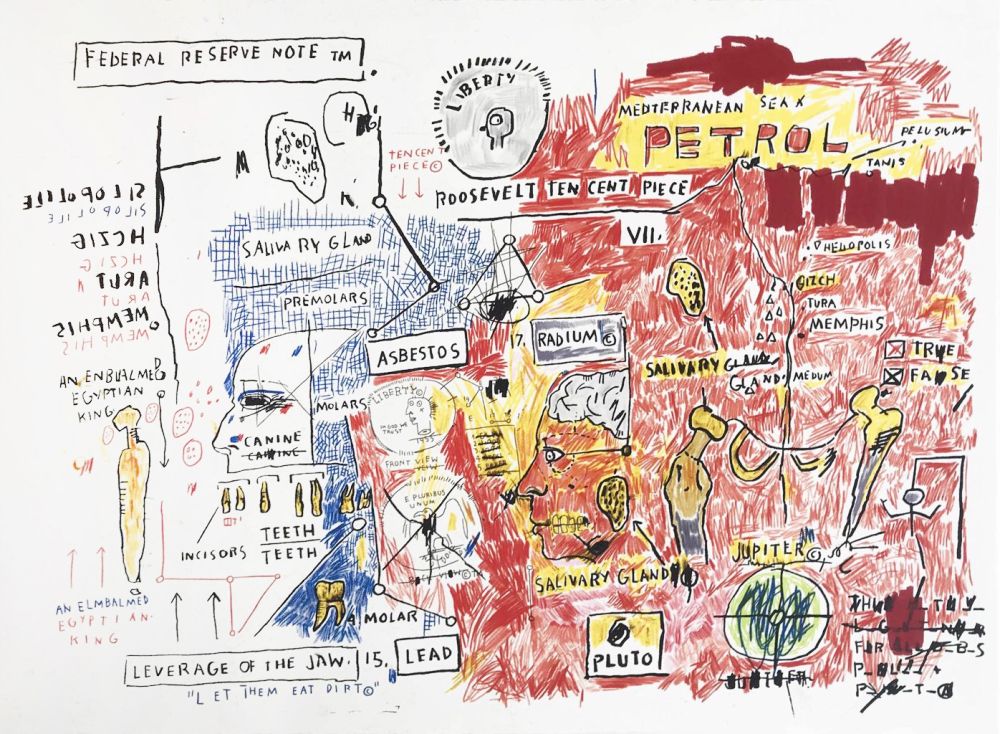 FEDERAL RESERVE NOTE TM.
LIBERTY
MEDTERRANEAN SEA
PETROL
PELUSIUM
TANIS
TEN CENT
PIECE©
ROOSEVELT TEN CENT PIECE
VII.
SILOPOLILE
SILOPOLILE
HCZIG
HCZIG
ARUT
ARUT
MEMPHIS
MEMPHIS
M
H
SALIVARY GLAND
PREMOLARS
HELIOPOLIS
GIZCH
TURA
MEMPHIS
MEDUM
TRUE
FALSE
ASBESTOS
17.
RADIUM ©
SALIVARY GLAND
GLAND
AN ENBUALMED
EGYPTIAN
KING
MOLARS
LIBERTY
IN GOD WE
TRUST
1955
FRONT VIEW
VIEW
CANINE
CANINE
E PLURIBUS
UNUM
INCISORS
TEETH
TEETH
SALIVARY GLAND
JUPITER©
AN ELMBALMED
EGYPTIAN-
KING
MOLAR
LEVERAGE OF THE JAW.
15.
LEAD
PLUTO
"LET THEM EAT DIRT©"